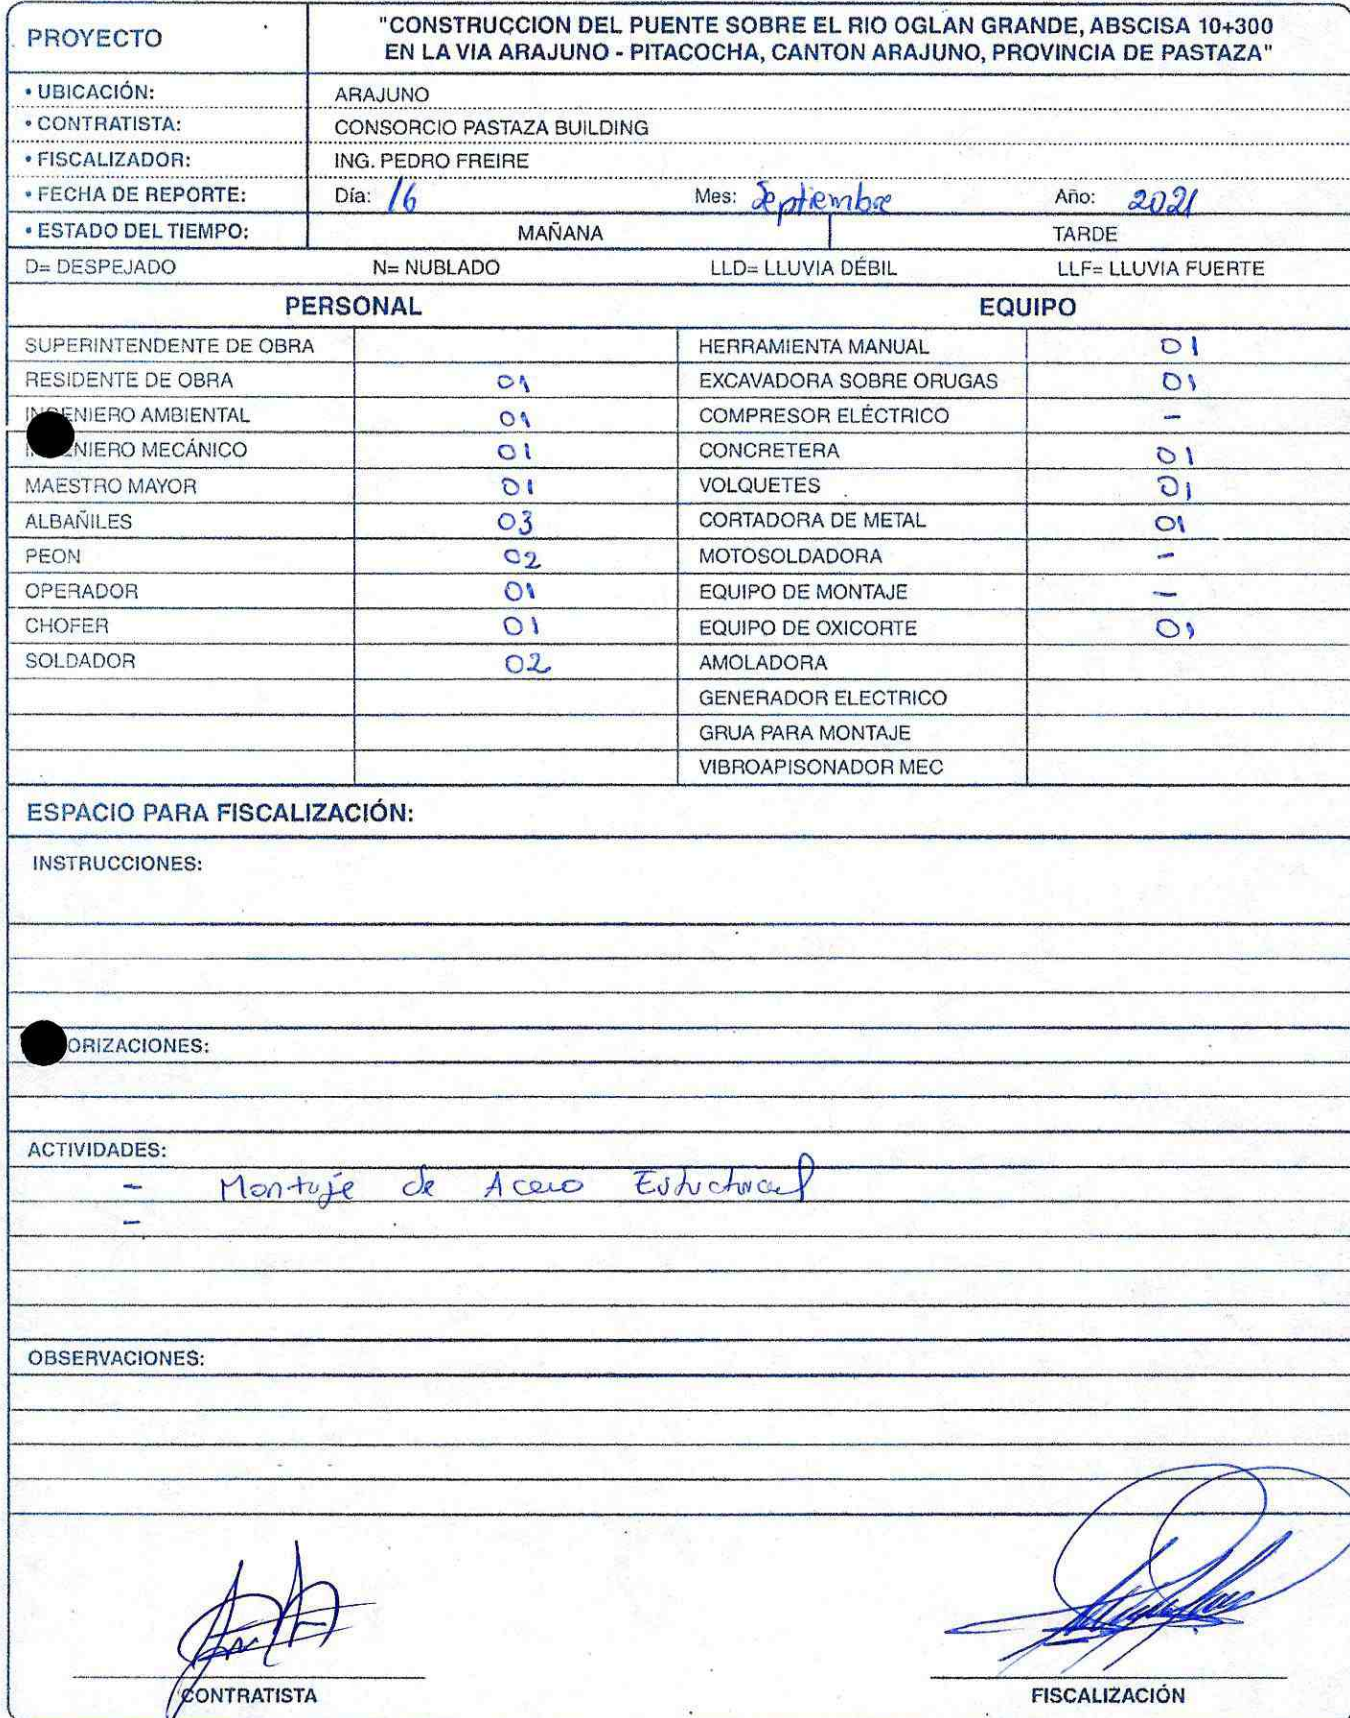 PROYECTO
"CONSTRUCCION DEL PUENTE SOBRE EL RIO OGLAN GRANDE, ABSCISA 10+300
EN LA VIA ARAJUNO - PITACOCHA, CANTON ARAJUNO, PROVINCIA DE PASTAZA"
• UBICACIÓN: ARAJUNO
• CONTRATISTA: CONSORCIO PASTAZA BUILDING
• FISCALIZADOR: ING. PEDRO FREIRE
• FECHA DE REPORTE: Día: 16 Mes: Septiembre Año: 2021
• ESTADO DEL TIEMPO: MAÑANA TARDE
D= DESPEJADO N= NUBLADO LLD= LLUVIA DÉBIL LLF= LLUVIA FUERTE
PERSONAL EQUIPO
SUPERINTENDENTE DE OBRA HERRAMIENTA MANUAL 01
RESIDENTE DE OBRA 01 EXCAVADORA SOBRE ORUGAS 01
INGENIERO AMBIENTAL 01 COMPRESOR ELÉCTRICO -
NIERO MECÁNICO 01 CONCRETERA 01
MAESTRO MAYOR 01 VOLQUETES 01
ALBAÑILES 03 CORTADORA DE METAL 01
PEON 02 MOTOSOLDADORA -
OPERADOR 01 EQUIPO DE MONTAJE -
CHOFER 01 EQUIPO DE OXICORTE 01
SOLDADOR 02 AMOLADORA
GENERADOR ELECTRICO
GRUA PARA MONTAJE
VIBROAPISONADOR MEC
ESPACIO PARA FISCALIZACIÓN:
INSTRUCCIONES:
ORIZACIONES:
ACTIVIDADES:
- Montaje de Acero Estructural
-
OBSERVACIONES:
CONTRATISTA FISCALIZACIÓN